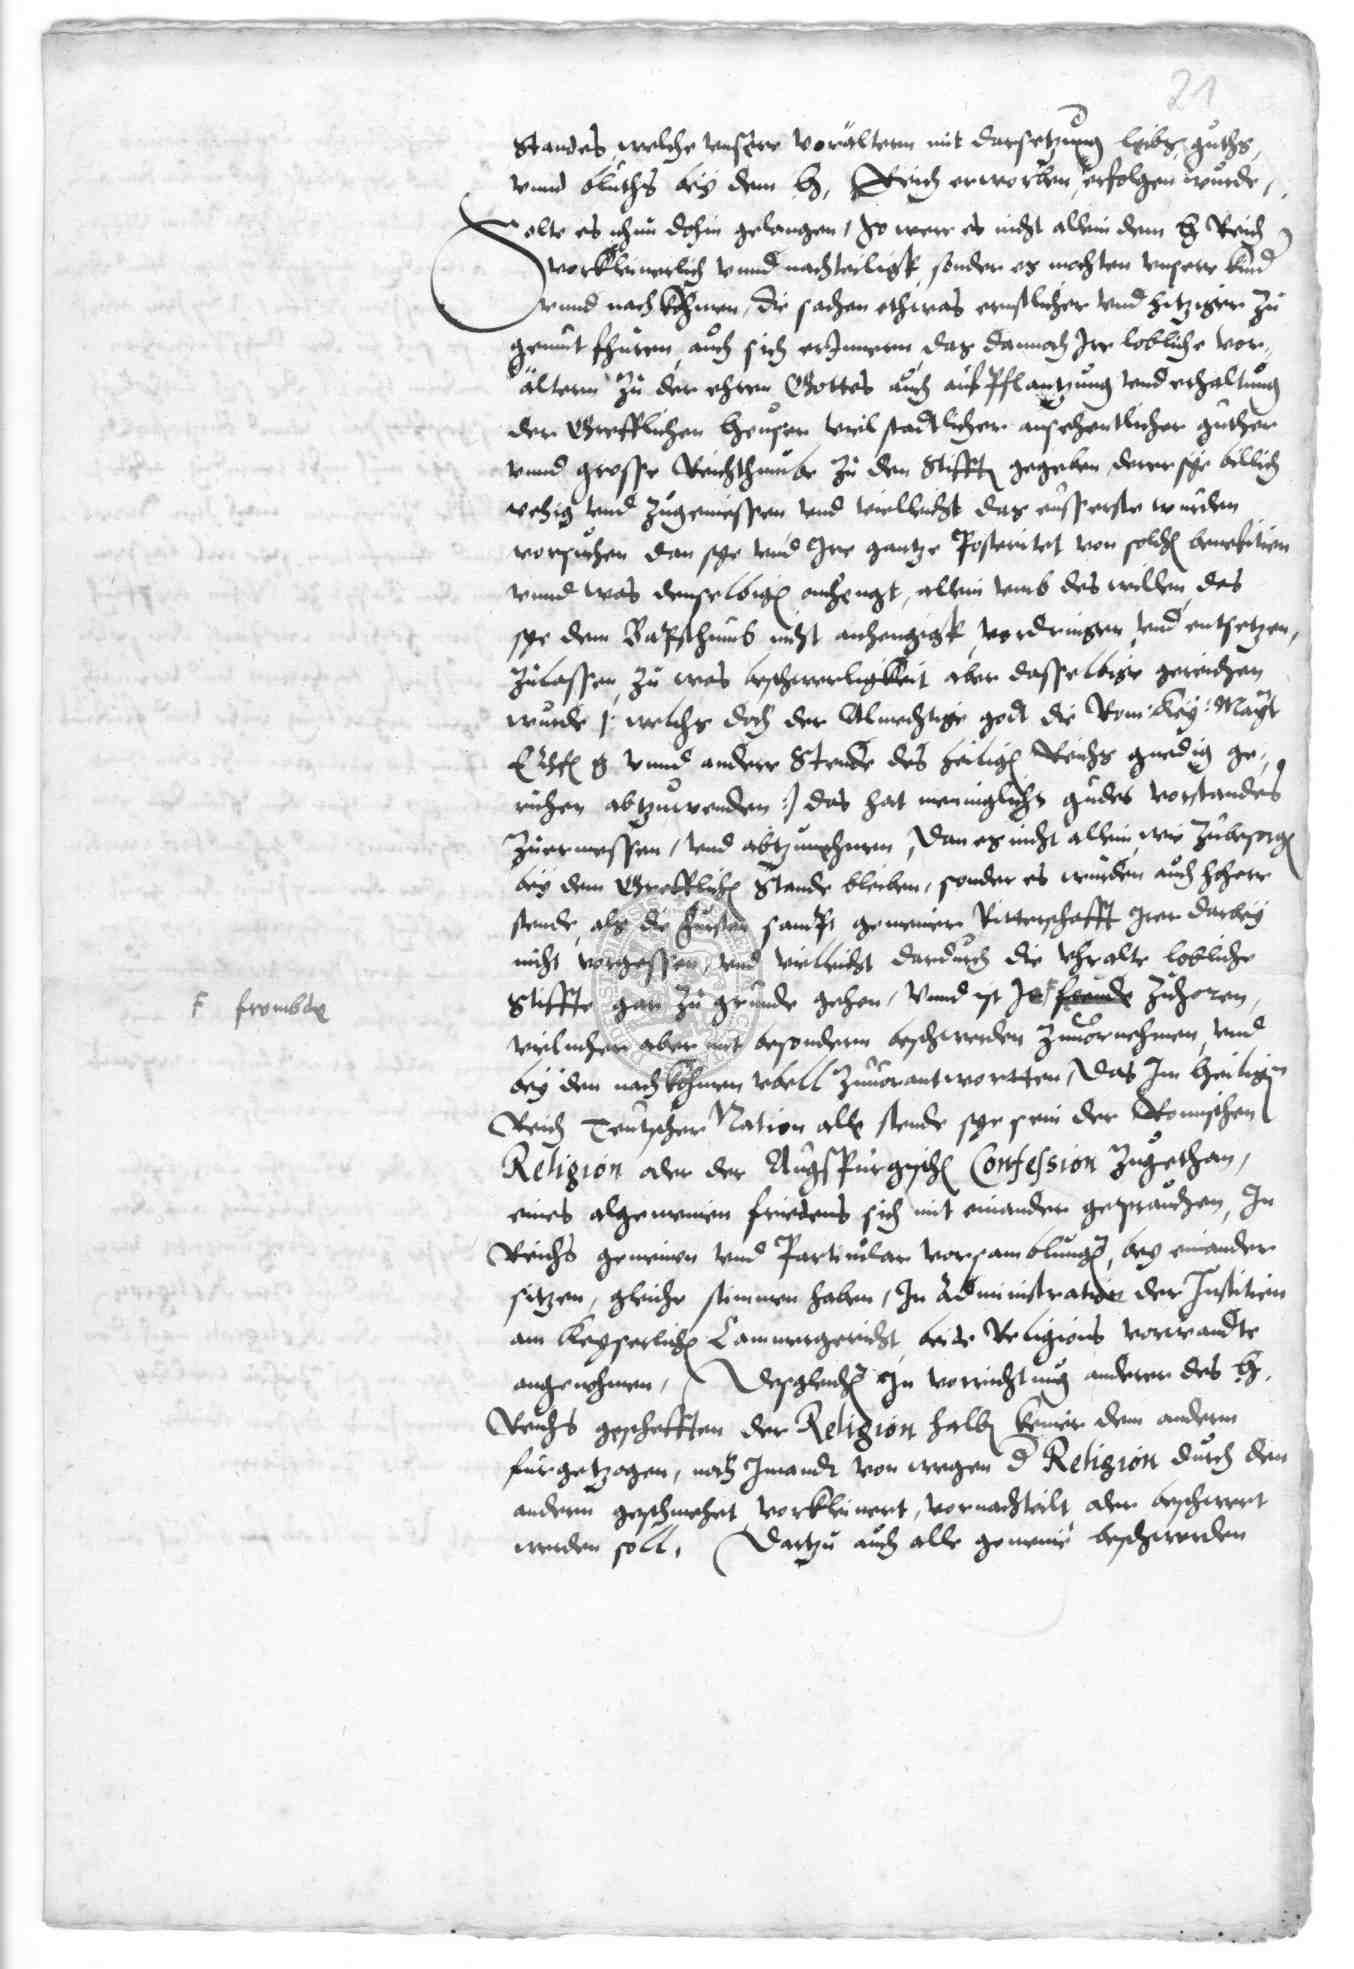 21
Standes, welche unsere Vorältern mit darsetzung leibs, guths,
unnd bluths bey dem H. Reich erworben, erfolgen wurde,
Solte es ihnn dohin gelangen, so were es nicht allein dem H. Reich
vorkleinerlich unnd nachteiligk, sonder es mochten unsere kind
unnd nachkohmen, die sachen ethwas ernstlicher und hitziger zu
gemut fhuren, auch sich erInnern, das dannoch Ire lobliche vor-
ältern zu der ehren Gottes auch auffpflantzung und erhaltung
der Grefflichen Heuser, viel stadtlicher ansehentlicher guther
unnd grosse Reichthumbe zu den Stifften gegeben, derer sye billich
vehig und zugeniessen und vielleicht das eusserste wurden
vorsuchen dan sye und Ire gantze Posteritet von solchen benefitien
unnd was denselbigen anhengt, allein umb des willen, das
sye dem Bapsthumb nicht anhengigk, vordringen, und entsetzen,
zulassen, zu was beschwerligkeit aber dasselbige gereichen
wurde /: welchs doch der Almechtige godt die Rom: Key: Mayt
E Chf g unnd andere Stende des heiligen Reichs gnedig ge-
ruhen abtzuwenden :/ das hat menniglichs gudes vorstandes
zuermessen, und abtzunehmen, Dan es nicht allein, wie zubesorgen
bey dem Grefflichen Stande bleiben, sonder es wurden auch hohere
stende, als die fursten sampt gemeiner Ritterschafft Irer darbey
nicht vorgessen, und vielleicht dardurch die uhralte lobliche
Stiffte gar zu grunde gehen, Unnd ist Je F frembde zuhoren,
F frombde
vielmeher aber mit besondern beschwerden zuvornehmen, und
bey den nachkohmen ubell zuvorantwortten, Das Im heiligen
Reich Teutscher Nation alle stende sye sein der Romischen
Religion oder der Augspurgischen Confession zugethan,
eines algemeinen friedens sich mit einander geprauchen, In
Reichs gemeinen und Particular vorsamblungen, bey einander
sitzen, gleiche stimmen haben, In Administration der Justitien
am Keyserlichen Cammergericht, beide Religions vorwandte
angenohmen, Desgleichen In vorrichtung anderer des H.
Reichs geschefften der Religion halben keiner dem andern
furgetzogen, noch Imandt von wegen d Religion durch den
andern geschmehet, vorkleinert, vornachteilt, oder beschwert
werden soll, Dartzu auch alle gemeine beschwerden